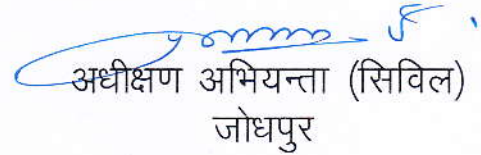 अधीक्षण अभियन्ता (सिविल)
जोधपुर